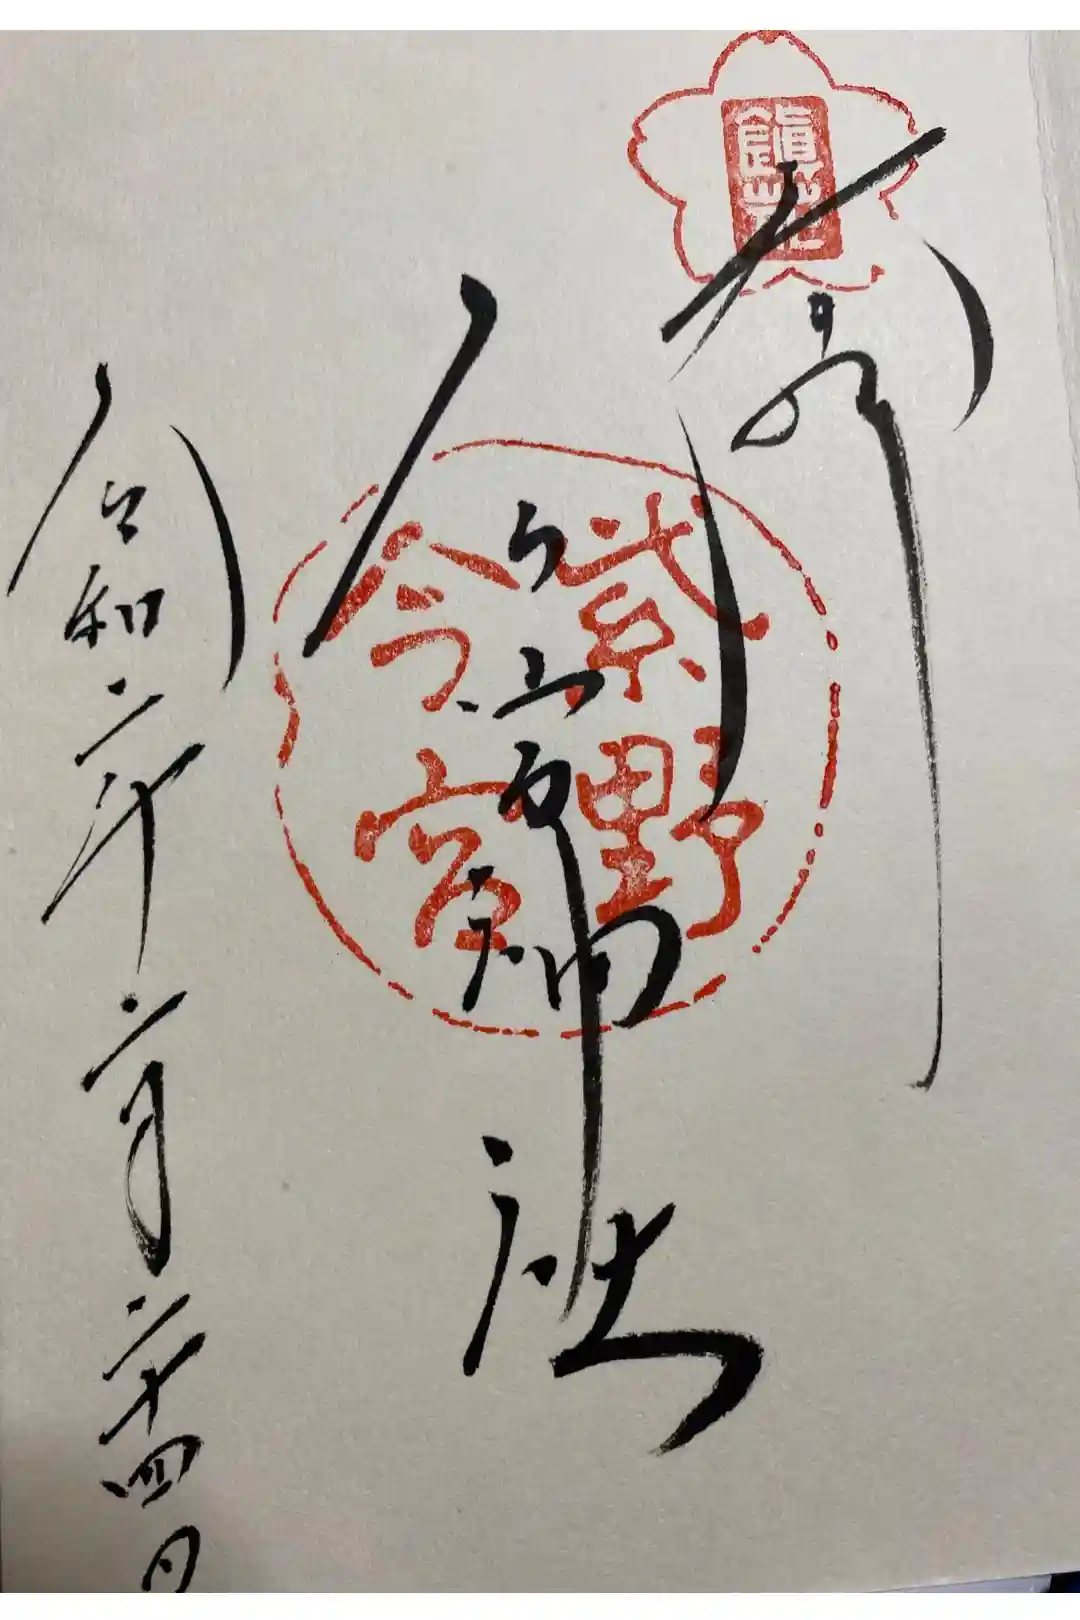 鎮花
奉拝
紫野
今宮
今宮神社
令和二年二月二十四日